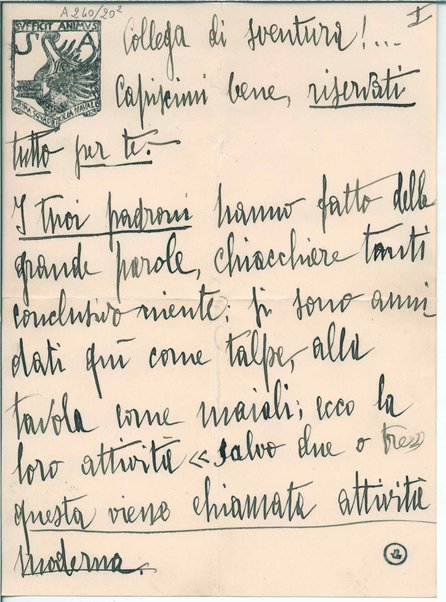 A 260/20²
I
SUFFICIT ANIMUS
S A
Collega di sventura!...
Capiscimi bene, riservati
tutto per te.-
I tuoi padroni hanno fatto delle
grande parole, chiacchiere tanti
conclusivo niente: si sono anni
dati qui come talpe,- alla
tavola come maiali; ecco la
loro attività « salvo due o tre»
questa viene chiamata attività
moderna.-